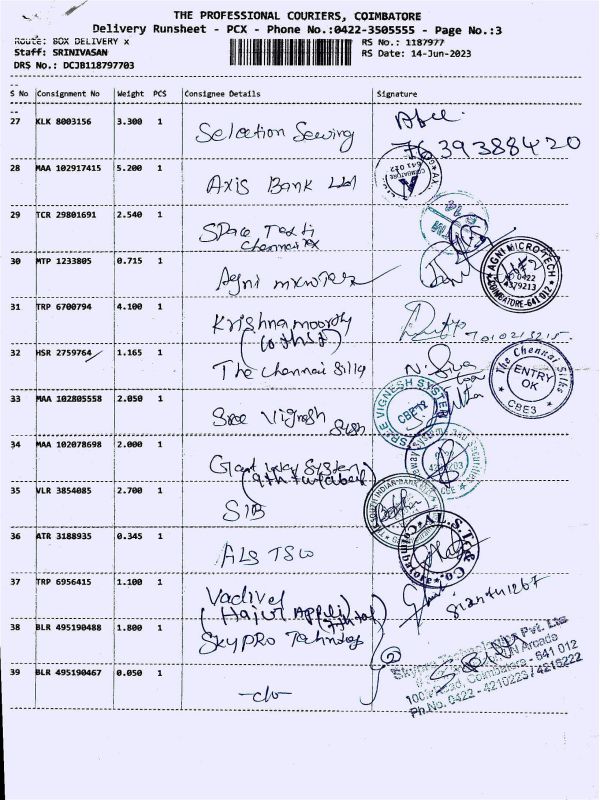 THE PROFESSIONAL COURIERS, COIMBATORE
Delivery Runsheet - PCX - Phone No.:0422-3505555 - Page No.:3
Route: BOX DELIVERY x
RS No.: 1187977
Staff: SRINIVASAN
RS Date: 14-Jun-2023
DRS No.: DCJB118797703
S No Consignment No Weight PCS Consignee Details Signature
27 KLK 8003156 3.300 1 Selection Sewing
7639388420
28 MAA 102917415 5.200 1 Axis Bank Ltd
COIMBATORE 641 012
29 TCR 29801691 2.540 1 Space
30 MTP 1233805 0.715 1 Agni
AGNI MICRO TECH
0422
4379213
COIMBATORE-641 012
31 TRP 6700794 4.100 1 Krishnamoorthy
32 HSR 2759764 1.165 1 The Chennai Silks
N. Siva
The Chennai Silks
ENTRY
OK
CBE3
33 MAA 102805558 2.050 1 Sree Vignesh
SREE VIGNESH SYSTEM
CBE-12
34 MAA 102078698 2.000 1 Giant way System
35 VLR 3854085 2.700 1 SIB
SOUTH INDIAN BANK
36 ATR 3188935 0.345 1 ALS
A.L.S. T & Co.
Coimbatore
37 TRP 6956415 1.100 1 Vadivel
38 BLR 495190488 1.800 1 Skypro Technology
Skypro Technologies Pvt. Ltd
Arcade
100ft Road, Coimbatore - 641 012
Ph.No. 0422 - 4210223 / 4216222
39 BLR 495190467 0.050 1 -do-